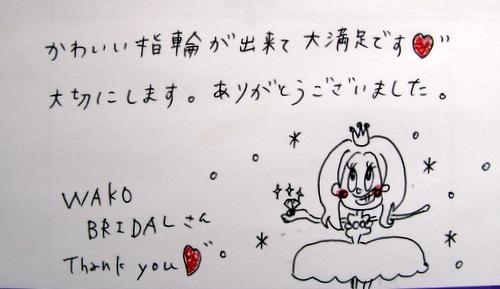 かわいい指輪が出来て大満足です♥"
大切にします。ありがとうございました。
WAKO
BRIDALさん
Thank you♥"